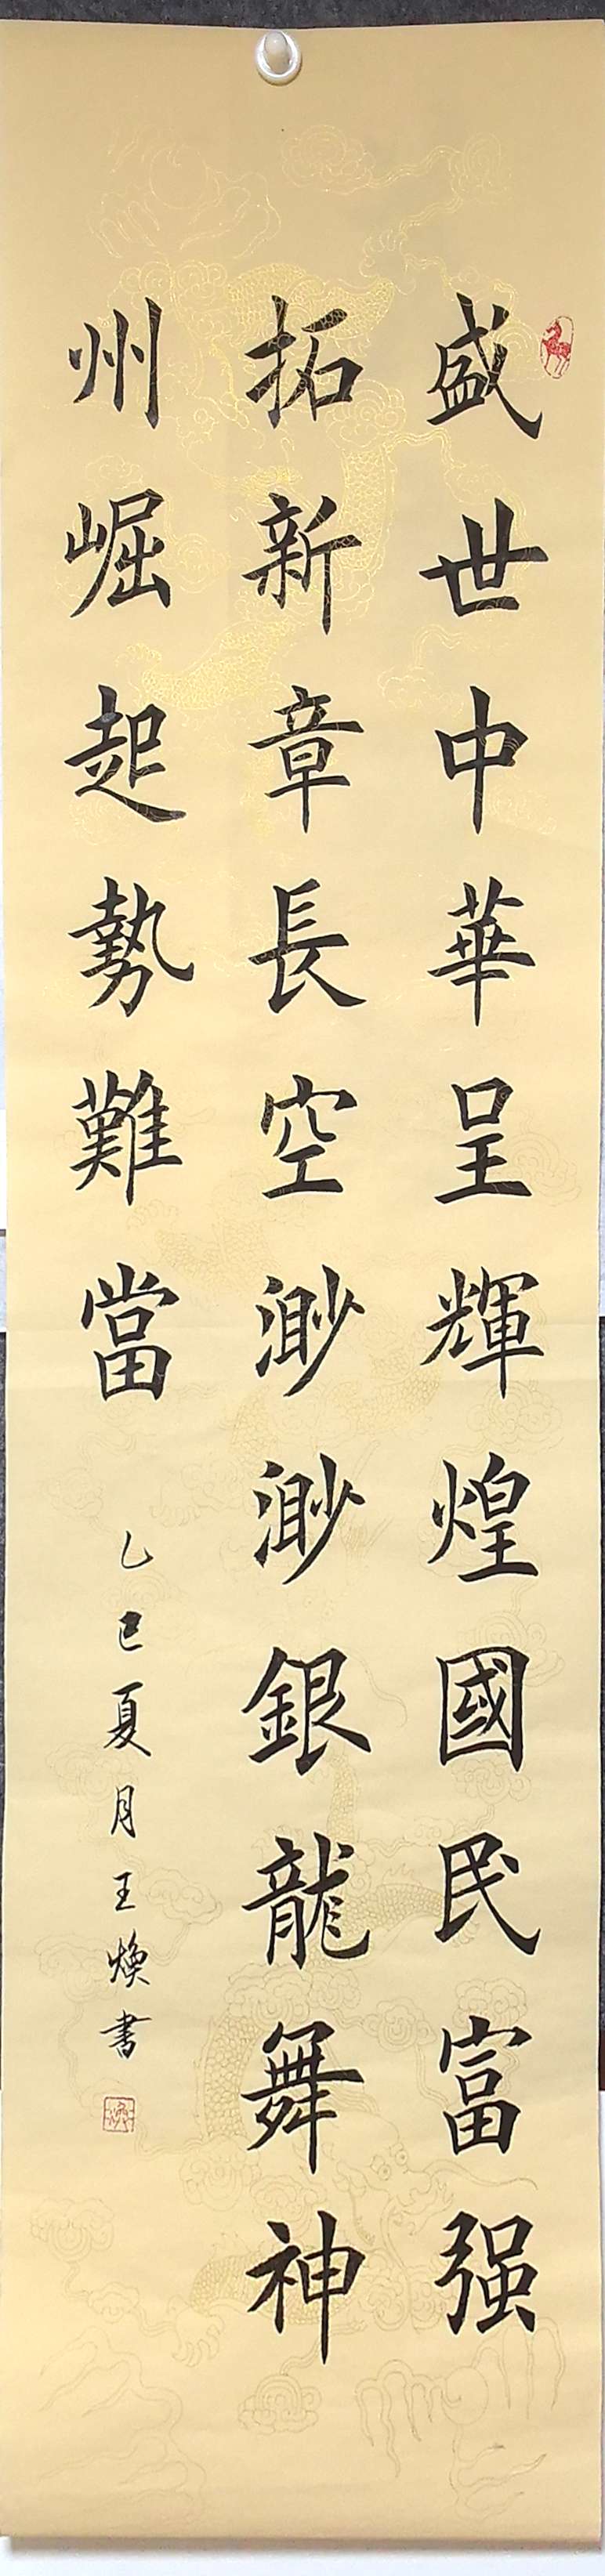 盛世中華呈輝煌國民富强
拓新章長空渺渺銀龍舞神
州崛起勢難當
乙巳夏月王煥書